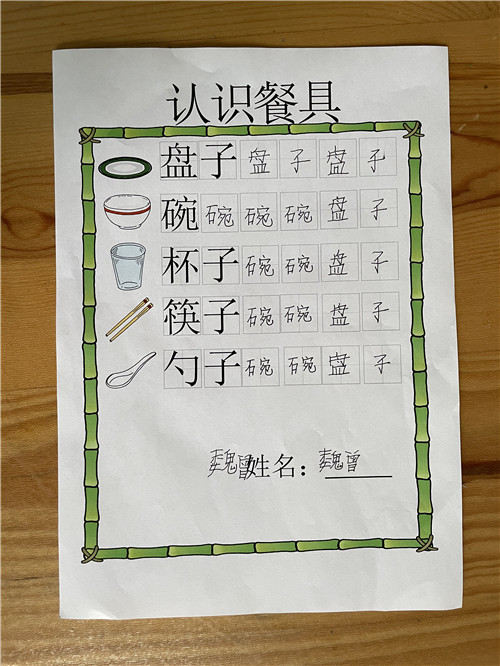 认识餐具
盘子盘子盘子
碗碗碗碗盘子
杯子碗碗盘子
筷子碗碗盘子
勺子碗碗盘子
魏曾姓名：魏曾